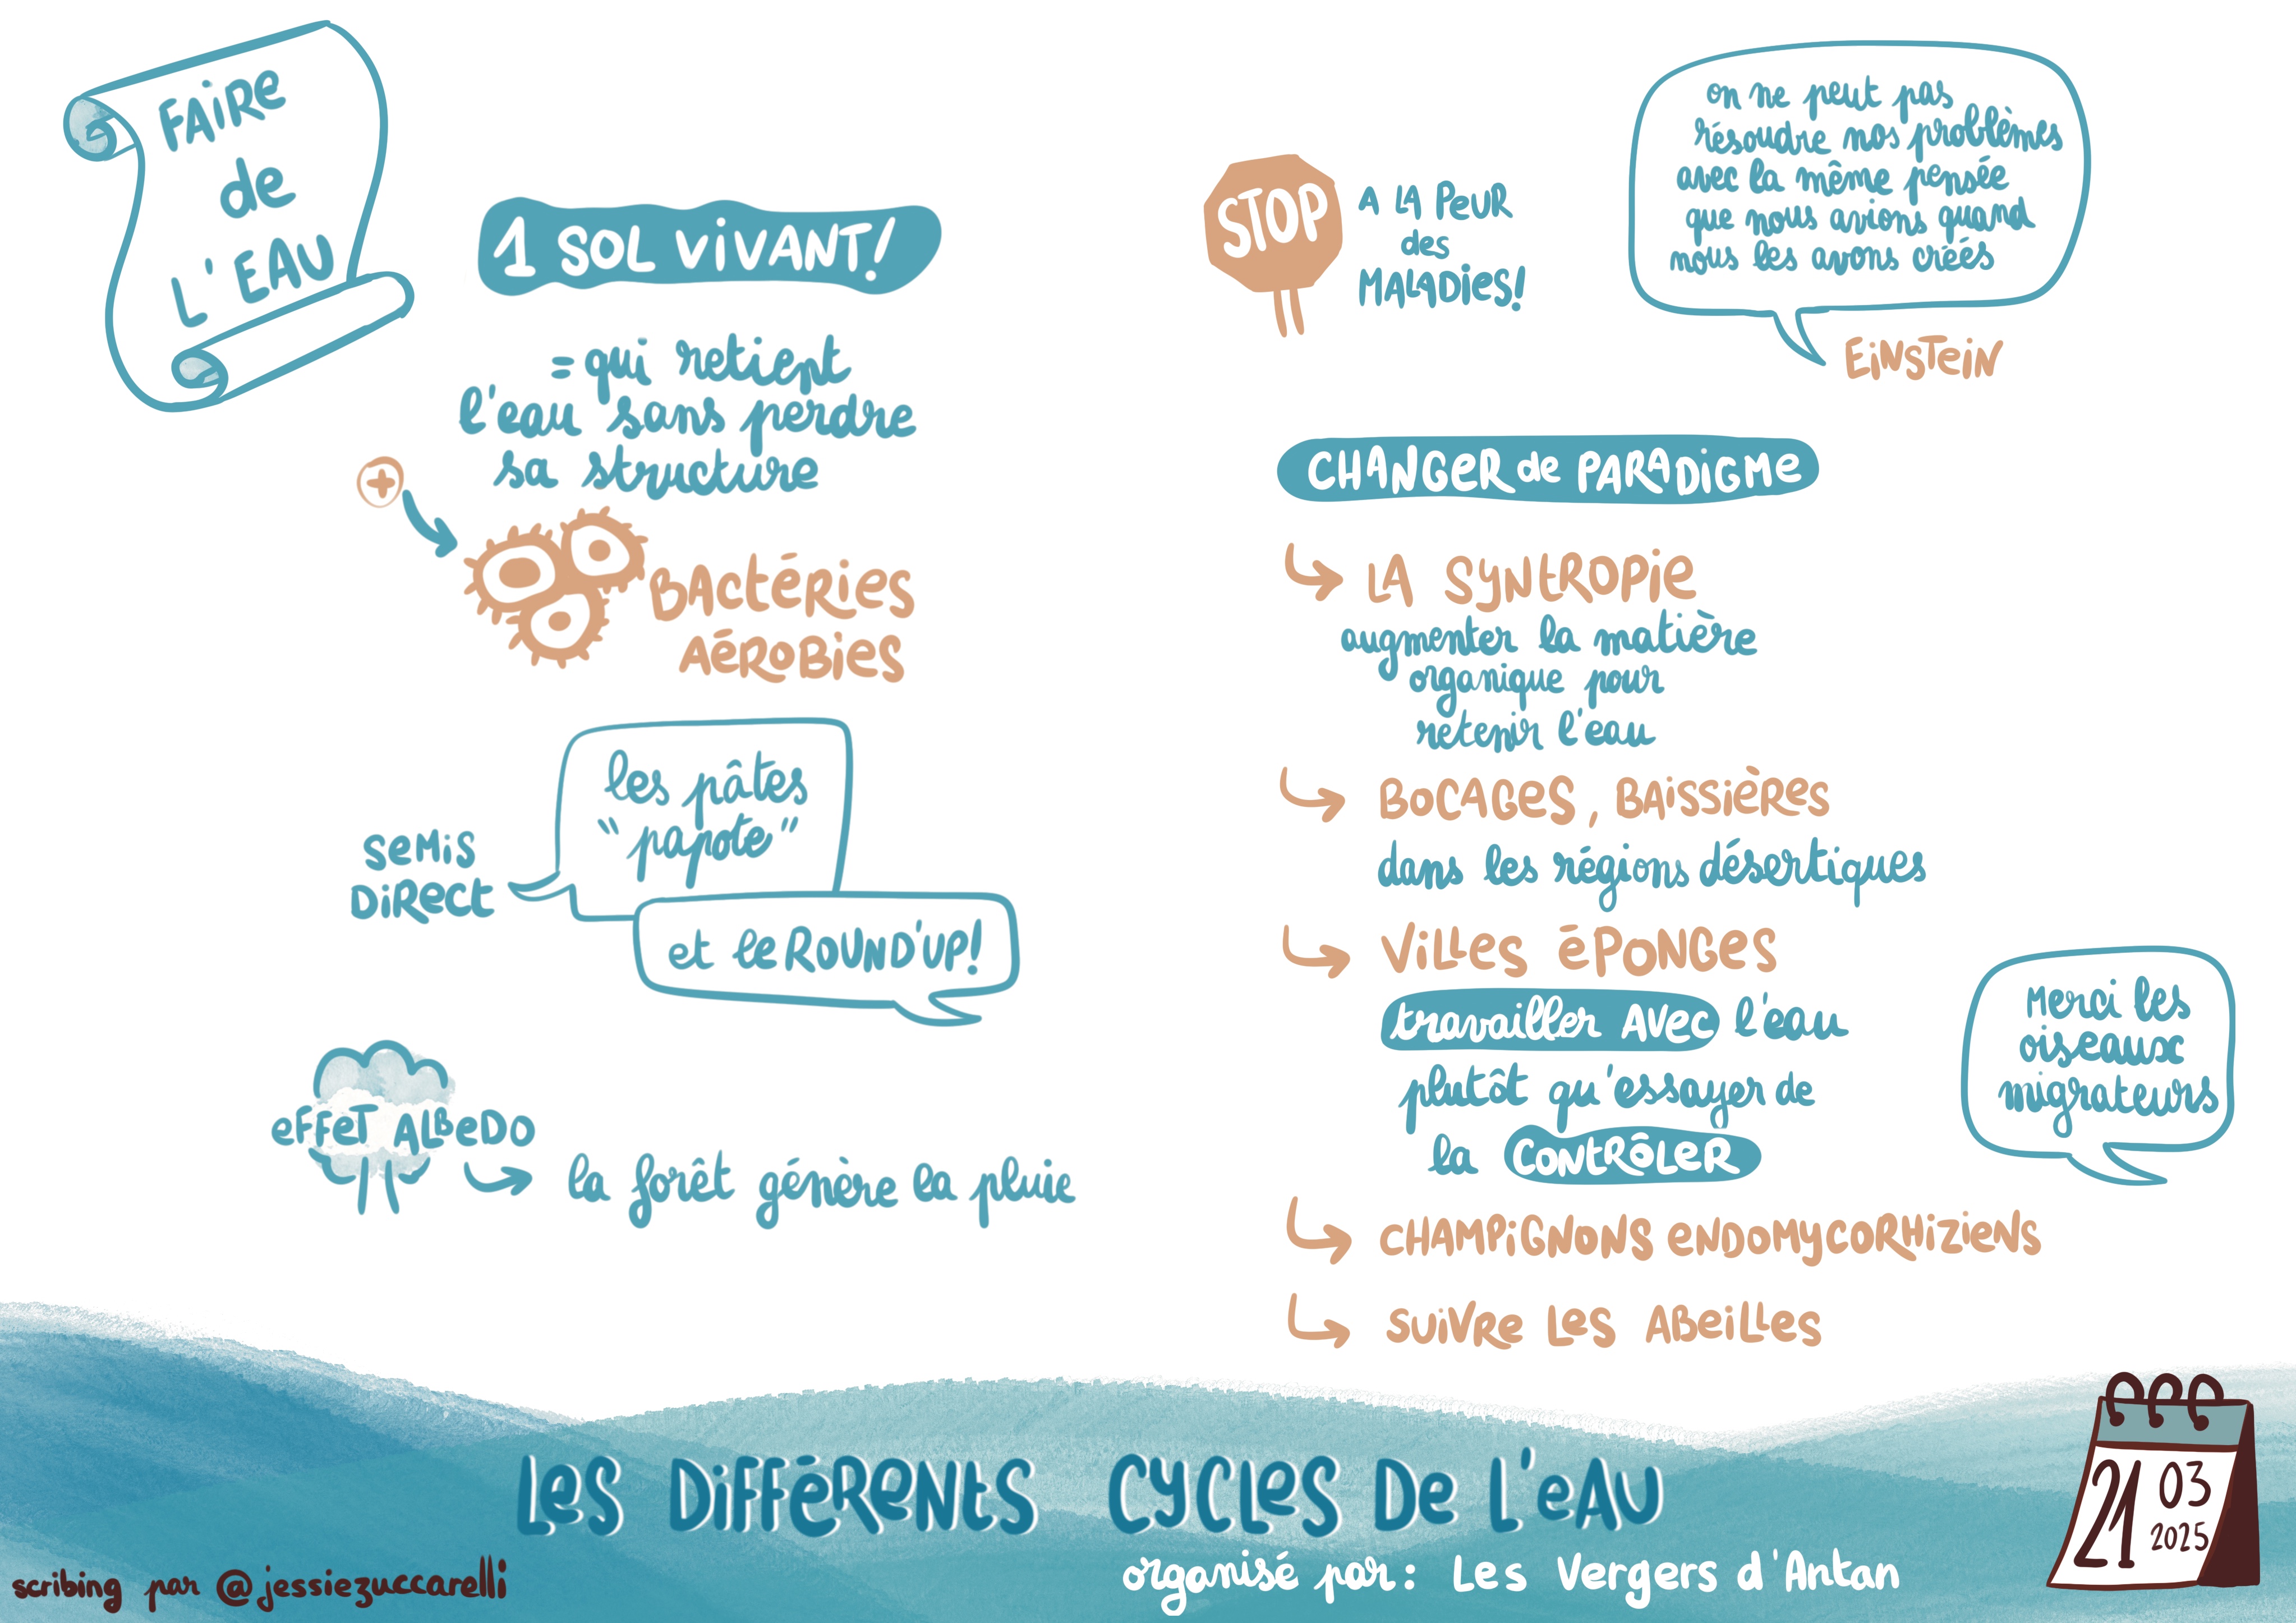 FAIRE
de
L'EAU
1 SOL VIVANT!
= qui retient
l'eau sans perdre
sa structure
+
BACTÉRIES
AÉROBIES
SEMIS
DIRECT
les pâtes
"papote"
et le ROUND'UP!
EFFET ALBEDO
la forêt génère la pluie
STOP
A LA PEUR
des
MALADIES!
on ne peut pas
résoudre nos problèmes
avec la même pensée
que nous avions quand
nous les avons créés
EINSTEIN
CHANGER de PARADIGME
LA SYNTROPIE
augmenter la matière
organique pour
retenir l'eau
BOCAGES, BAISSIÈRES
dans les régions désertiques
VILLES ÉPONGES
travailler AVEC l'eau
plutôt qu'essayer de
la CONTRÔLER
Merci les
oiseaux
migrateurs
CHAMPIGNONS ENDOMYCORHIZIENS
SUIVRE LES ABEILLES
LES DIFFÉRENTS CYCLES DE L'EAU
organisé par: Les Vergers d'Antan
scribing par @jessiezuccarelli
21 03
2025